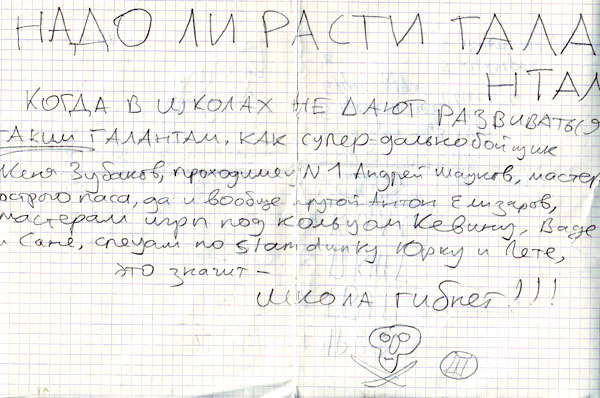 НАДО ЛИ РАСТИ ТАЛА
НТАМ
КОГДА В ШКОЛАХ НЕ ДАЮТ РАЗВИВАТЬСЯ
ТАКИМ ТАЛАНТАМ, КАК супер-дальнобойщик
Женя Зубаков, проходимец N1 Андрей, мастер
острого паса, да и вообще крутой Антон Елизаров,
мастерам игры под кольцом Кевину, Ваде
и Сане, спецам по slam dunky Юрку и Пете,
это значит —
ШКОЛА гибнет!!!